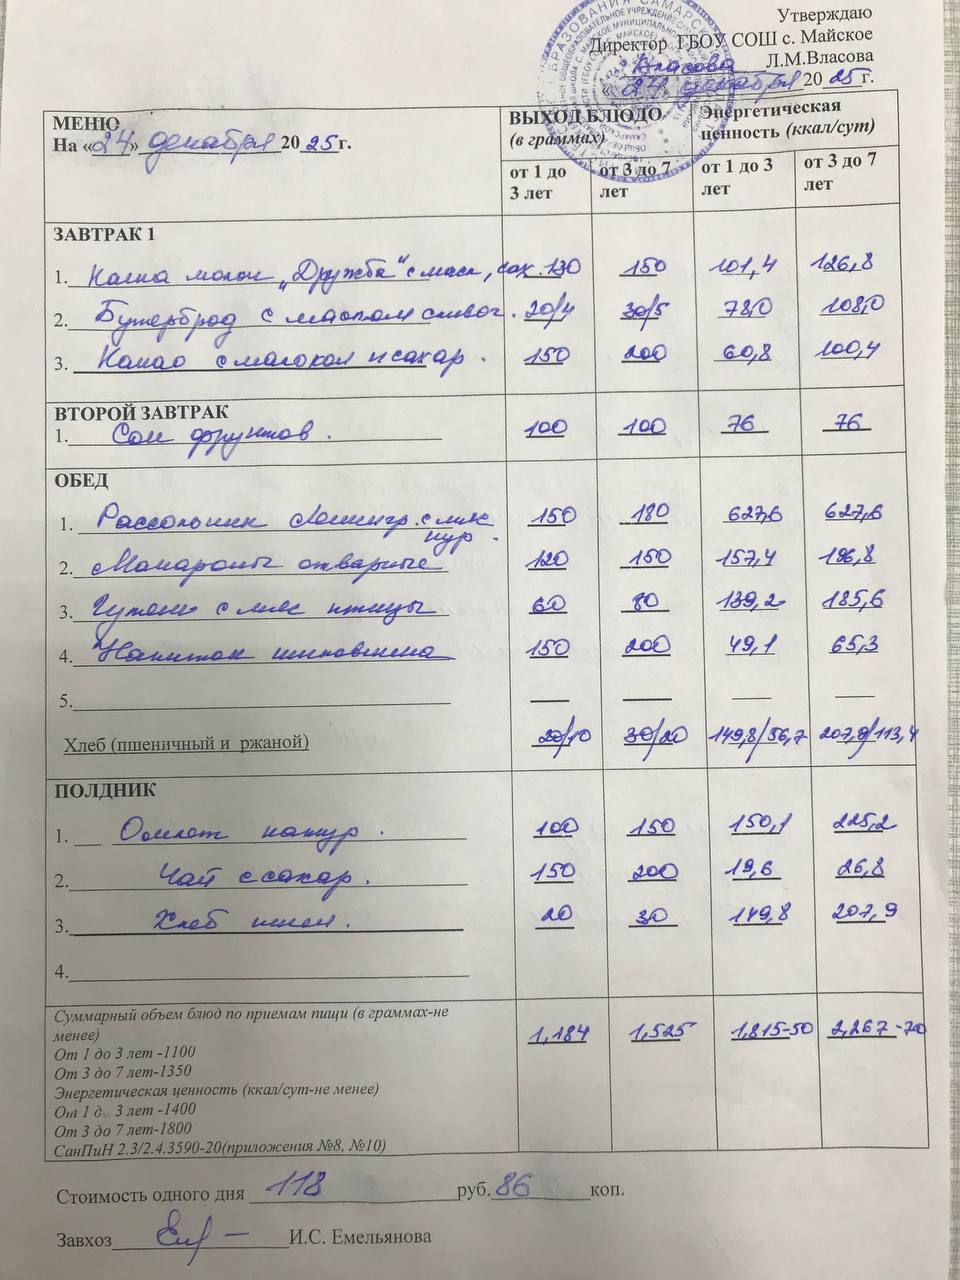 Утверждаю
Директор ГБОУ СОШ с. Майское
Власова Л.М.Власова
«24» декабря 2025г.
МЕНЮ
На «24» декабря 2025г.
ВЫХОД БЛЮДО
(в граммах)
Энергетическая
ценность (ккал/сут)
от 1 до 3 лет
от 3 до 7 лет
от 1 до 3 лет
от 3 до 7 лет
ЗАВТРАК 1
1. Каша молоч „Дружба“ с масл, сах. 130 150 101,4 126,8
2. Бутерброд с маслом сливоч. 20/4 30/5 78,0 108,0
3. Какао с молоком и сахар. 150 200 60,8 100,4
ВТОРОЙ ЗАВТРАК
1. Сок фруктов. 100 100 76 76
ОБЕД
1. Рассольник Ленингр. с мяс 150 180 627,6 627,6
кур.
2. Макароны отварные 120 150 157,4 196,8
3. Гуляш с мяс птицы 60 80 139,2 185,6
4. Напиток шиповника 150 200 49,1 65,3
5. — — — —
Хлеб (пшеничный и ржаной) 20/10 30/20 149,8/56,7 207,9/113,4
ПОЛДНИК
1. Омлет натур. 100 150 150,1 225,2
2. Чай с сахар. 150 200 19,6 26,8
3. Хлеб пшен. 20 30 149,8 207,9
4.
Суммарный объем блюд по приемам пищи (в граммах-не
менее)
От 1 до 3 лет -1100
От 3 до 7 лет-1350
Энергетическая ценность (ккал/сут-не менее)
От 1 до 3 лет -1400
От 3 до 7 лет-1800
СанПиН 2.3/2.4.3590-20(приложения №8, №10)
1,184 1,525 1,815-50 2,267-70
Стоимость одного дня 118 руб. 86 коп.
Завхоз И.С. Емельянова